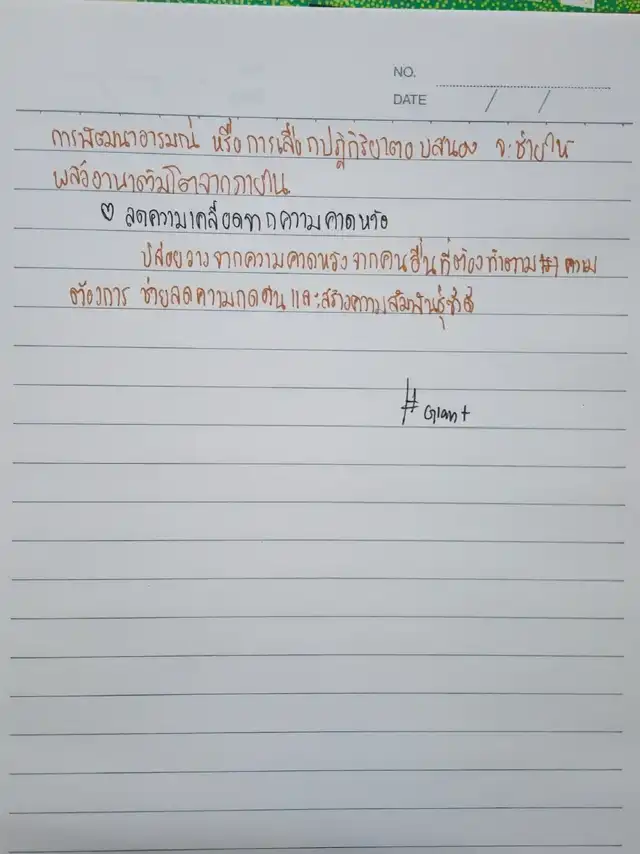 NO.
DATE / /
การพัฒนาอารมณ์ หรือการเลือกปฏิกิริยาตอบสนอง จะช่วยให้
พลังอำนาจเติบโตจากภายใน
♡ ลดความเครียดจากความคาดหวัง
ปล่อยวางจากความคาดหวังจากคนอื่นที่ต้องทำตาม ความ
ต้องการ ช่วยลดความกดดันและสร้างความสัมพันธ์
# Giant